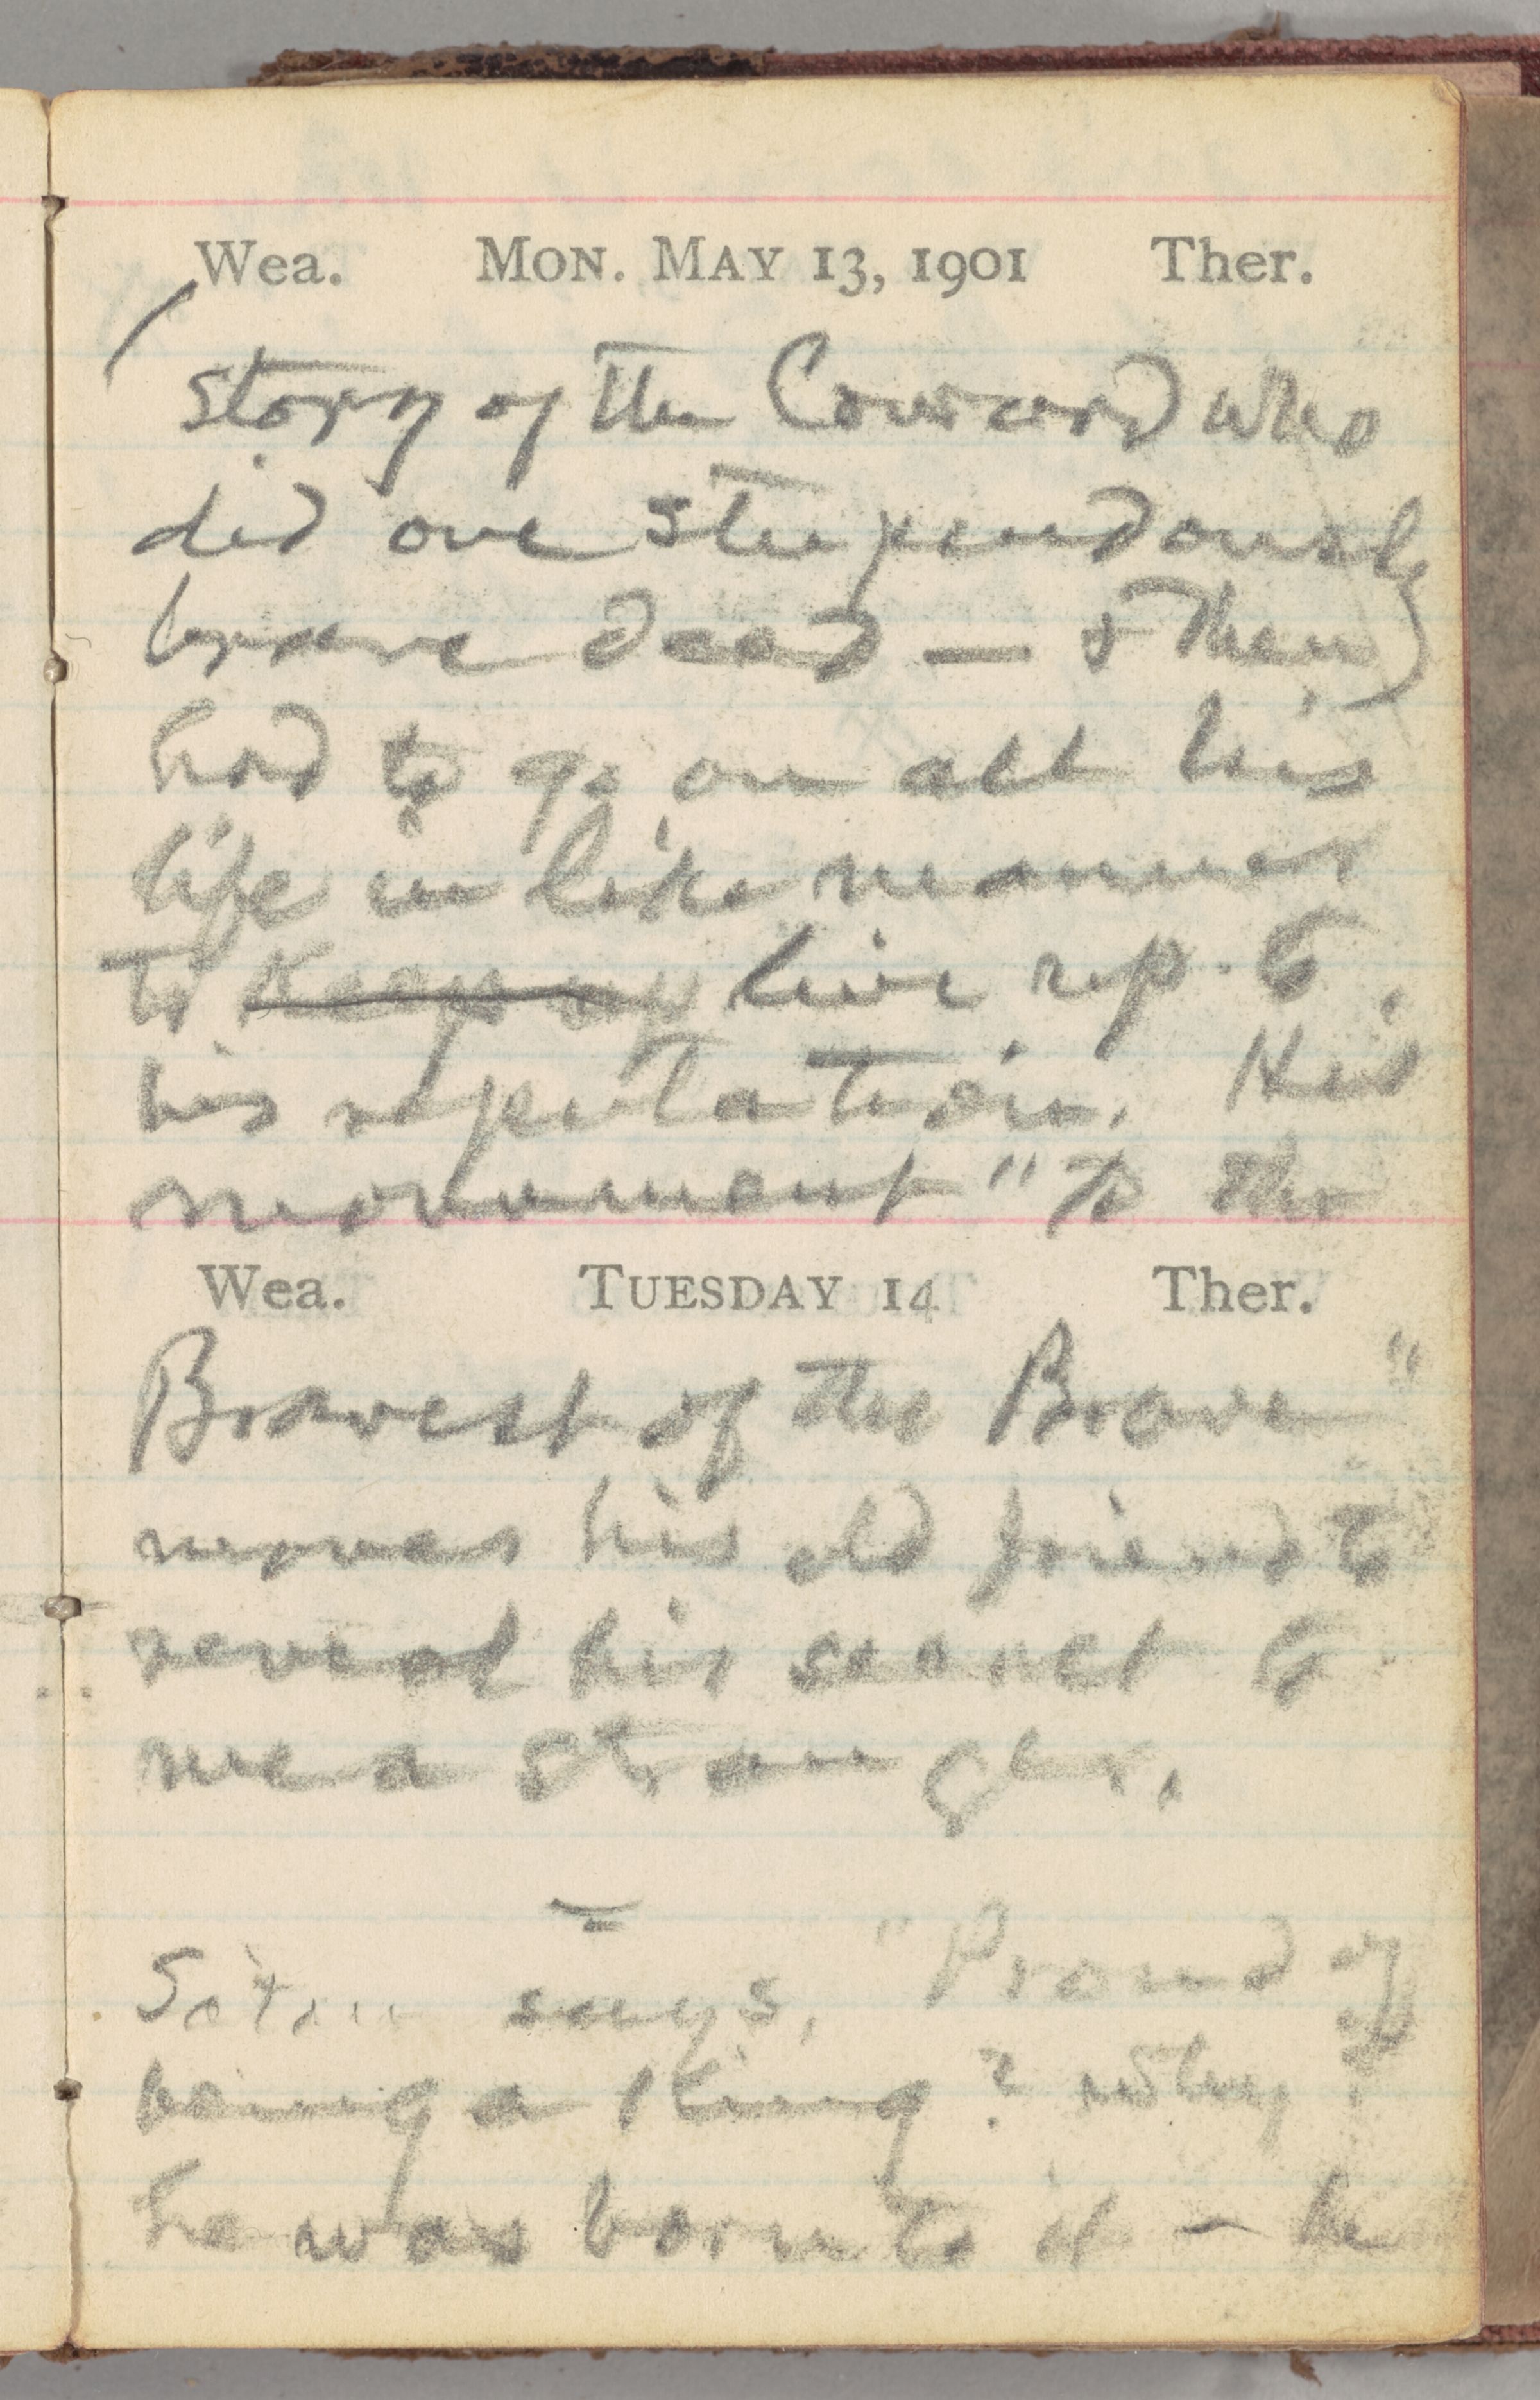 Wea. MON. MAY 13, 1901 Ther.
(Story of the Coward who
did one stupendously
brave deed — & then)
had to go on all his
life in like manner
to keep up live up to
his reputation. His
monument "to the
Wea. TUESDAY 14 Ther.
Bravest of the Brave"
moves his old friend to
reveal his secret to
me a stranger.
Satan says, "Proud of
being a king? why
he was born to it — he